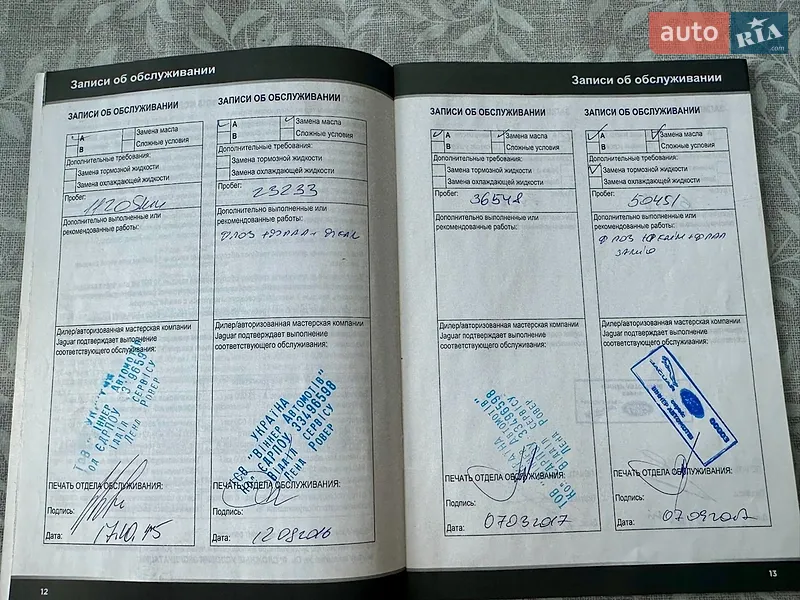 auto RIA .com
Записи об обслуживании
ЗАПИСИ ОБ ОБСЛУЖИВАНИИ
A
Замена масла
B
Сложные условия
Дополнительные требования:
Замена тормозной жидкости
Замена охлаждающей жидкости
Пробег:
11208км
Дополнительно выполненные или
рекомендованные работы:
Дилер/авторизованная мастерская компании
Jaguar подтверждает выполнение
соответствующего обслуживания:
ПЕЧАТЬ ОТДЕЛА ОБСЛУЖИВАНИЯ:
Подпись:
Дата:
17.10.15
ЗАПИСИ ОБ ОБСЛУЖИВАНИИ
A
Замена масла
B
Сложные условия
Дополнительные требования:
Замена тормозной жидкости
Замена охлаждающей жидкости
Пробег:
23233
Дополнительно выполненные или
рекомендованные работы:
Дилер/авторизованная мастерская компании
Jaguar подтверждает выполнение
соответствующего обслуживания:
УКРАЇНА
ТОВ "ВІННЕР АВТОМОТІВ"
ЄДРПОУ 33496598
ВІДДІЛ СЕРВІСУ
ЛЕНД РОВЕР
ПЕЧАТЬ ОТДЕЛА ОБСЛУЖИВАНИЯ:
Подпись:
Дата:
12082016
12
Записи об обслуживании
ЗАПИСИ ОБ ОБСЛУЖИВАНИИ
A
Замена масла
B
Сложные условия
Дополнительные требования:
Замена тормозной жидкости
Замена охлаждающей жидкости
Пробег:
36548
Дополнительно выполненные или
рекомендованные работы:
Дилер/авторизованная мастерская компании
Jaguar подтверждает выполнение
соответствующего обслуживания:
ПЕЧАТЬ ОТДЕЛА ОБСЛУЖИВАНИЯ:
Подпись:
Дата:
07032017
ЗАПИСИ ОБ ОБСЛУЖИВАНИИ
A
Замена масла
B
Сложные условия
Дополнительные требования:
Замена тормозной жидкости
Замена охлаждающей жидкости
Пробег:
50451
Дополнительно выполненные или
рекомендованные работы:
Дилер/авторизованная мастерская компании
Jaguar подтверждает выполнение
соответствующего обслуживания:
JAGUAR
ПЕЧАТЬ ОТДЕЛА ОБСЛУЖИВАНИЯ:
Подпись:
Дата:
07092017
13